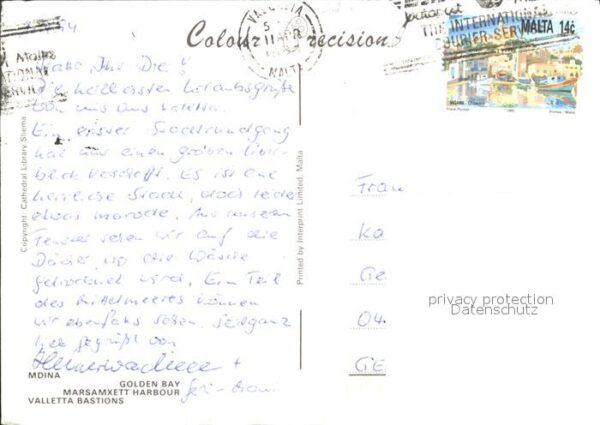 Colour Precision
VALLETTA
MALTA
THE INTERNATIONAL
COURIER SERVICE
MALTA 14c
Hallo, Ihr Die
Die herzlichsten Urlaubsgrüße
von uns aus Valletta.
Ein erster Stadtrundgang
hat uns einen groben Über-
blick verschafft. Es ist eine
herrliche Stadt, doch leider
etwas marode. Aus unserem
Fenster sehen wir auf die
Dächer, wo die Wäsche
getrocknet wird. Ein Teil
des Mittelmeeres können
wir ebenfalls sehen. Seid ganz
lieb gegrüßt von
+
Copyright: Cathedral Library Sliema
Printed by Interprint Limited, Malta
Frau
Ka
Ge
04.
GE
privacy protection
Datenschutz
MDINA
GOLDEN BAY
MARSAMXETT HARBOUR
VALLETTA BASTIONS